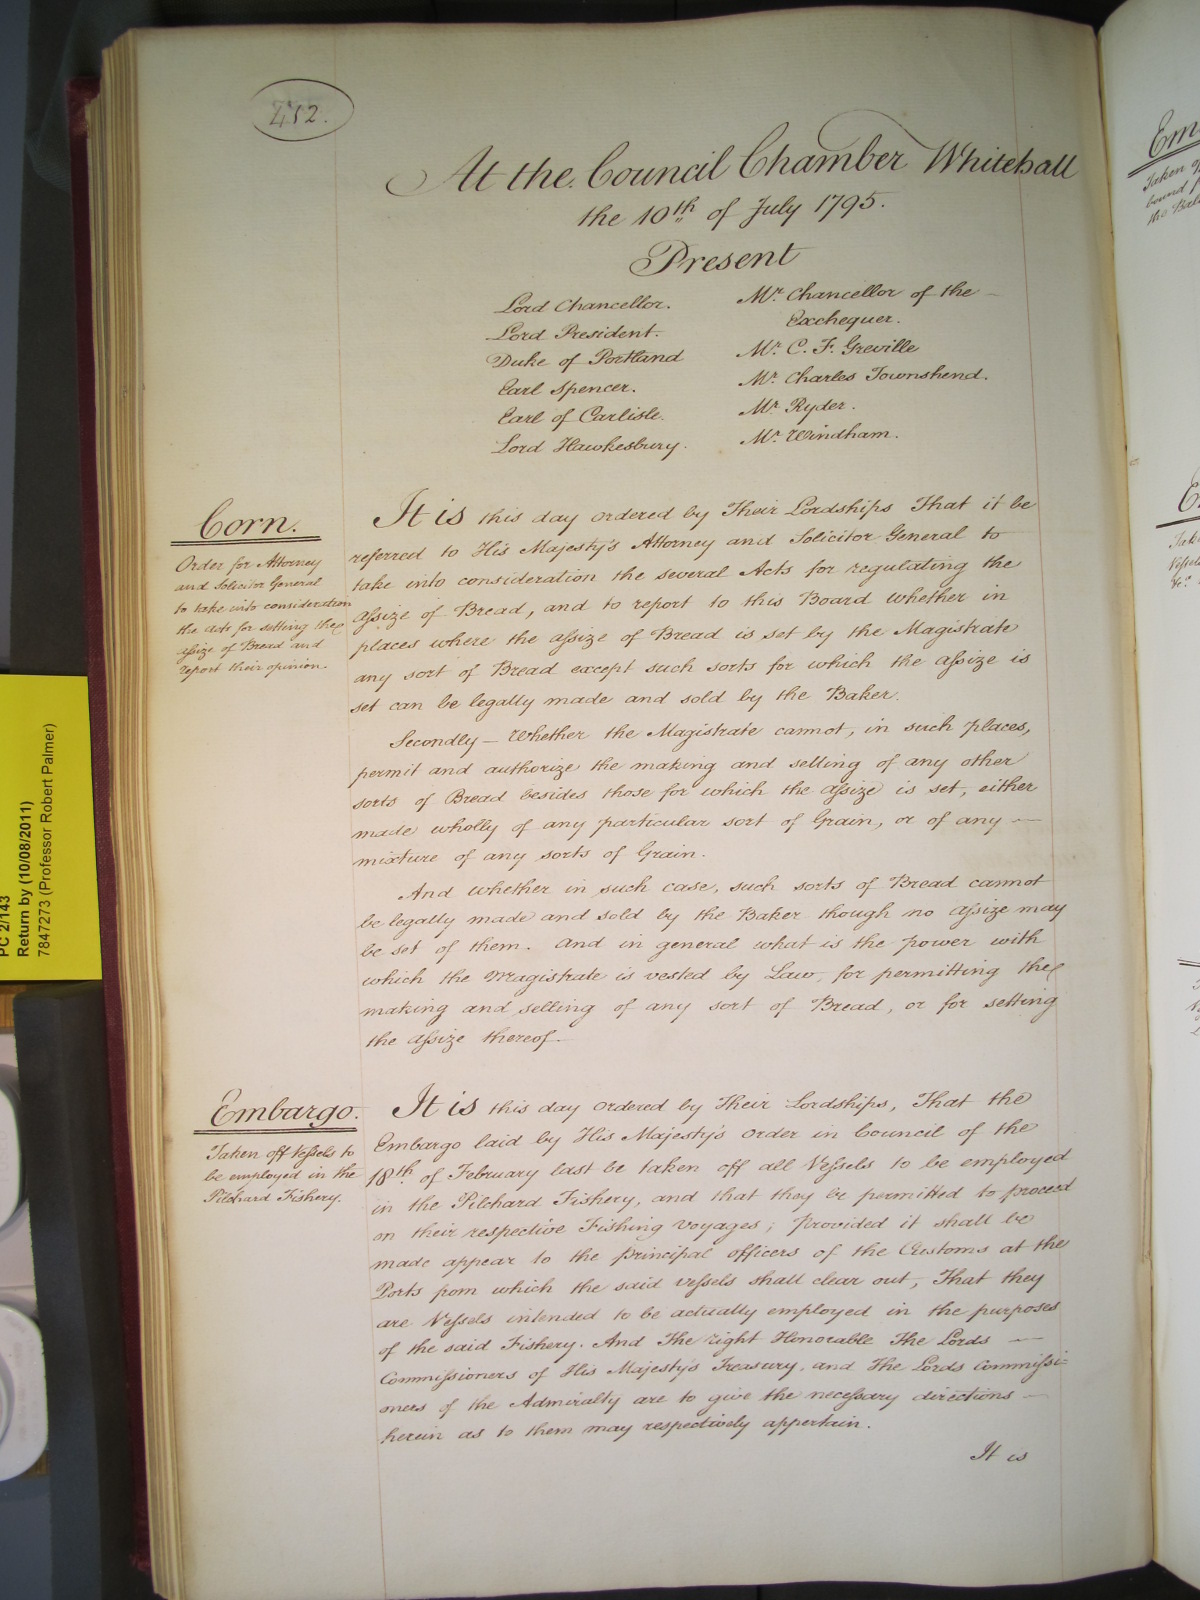 452.
At the Council Chamber Whitehall
the 10th of July 1795.
Present
Lord Chancellor.
Lord President.
Duke of Portland
Earl Spencer.
Earl of Carlisle.
Lord Hawkesbury.
Mr. Chancellor of the
Exchequer.
Mr. C. F. Greville
Mr. Charles Townshend.
Mr. Ryder.
Mr. Windham.
Corn.
Order for Attorney
and Solicitor General
to take into consideration
the Acts for setting the
Assize of Bread and
report their opinion.
It is this day ordered by Their Lordships That it be
referred to His Majesty's Attorney and Solicitor General to
take into consideration the several Acts for regulating the
Assize of Bread, and to report to this Board whether in
places where the Assize of Bread is set by the Magistrate
any sort of Bread except such sorts for which the Assize is
set can be legally made and sold by the Baker.
Secondly — Whether the Magistrate cannot, in such places,
permit and authorize the making and selling of any other
sorts of Bread besides those for which the Assize is set, either
made wholly of any particular sort of Grain, or of any —
mixture of any sorts of Grain.
And whether in such case, such sorts of Bread cannot
be legally made and sold by the Baker though no Assize may
be set of them. And in general what is the power with
which the Magistrate is vested by Law, for permitting the
making and selling of any sort of Bread, or for setting
the Assize thereof.
Embargo.
Taken off Vessels to
be employed in the
Pilchard Fishery.
It is this day ordered by Their Lordships, That the
Embargo laid by His Majesty's Order in Council of the
18th of February last be taken off all Vessels to be employed
in the Pilchard Fishery, and that they be permitted to proceed
on their respective Fishing Voyages; provided it shall be
made appear to the principal officers of the Customs at the
Ports from which the said Vessels shall clear out, That they
are Vessels intended to be actually employed in the purposes
of the said Fishery. And The Right Honorable The Lords —
Commissioners of His Majesty's Treasury, and The Lords Commissi=
oners of the Admiralty are to give the necessary directions —
herein as to them may respectively appertain.
It is
PC 2/143
Return by (10/08/2011)
7847273 (Professor Robert Palmer)